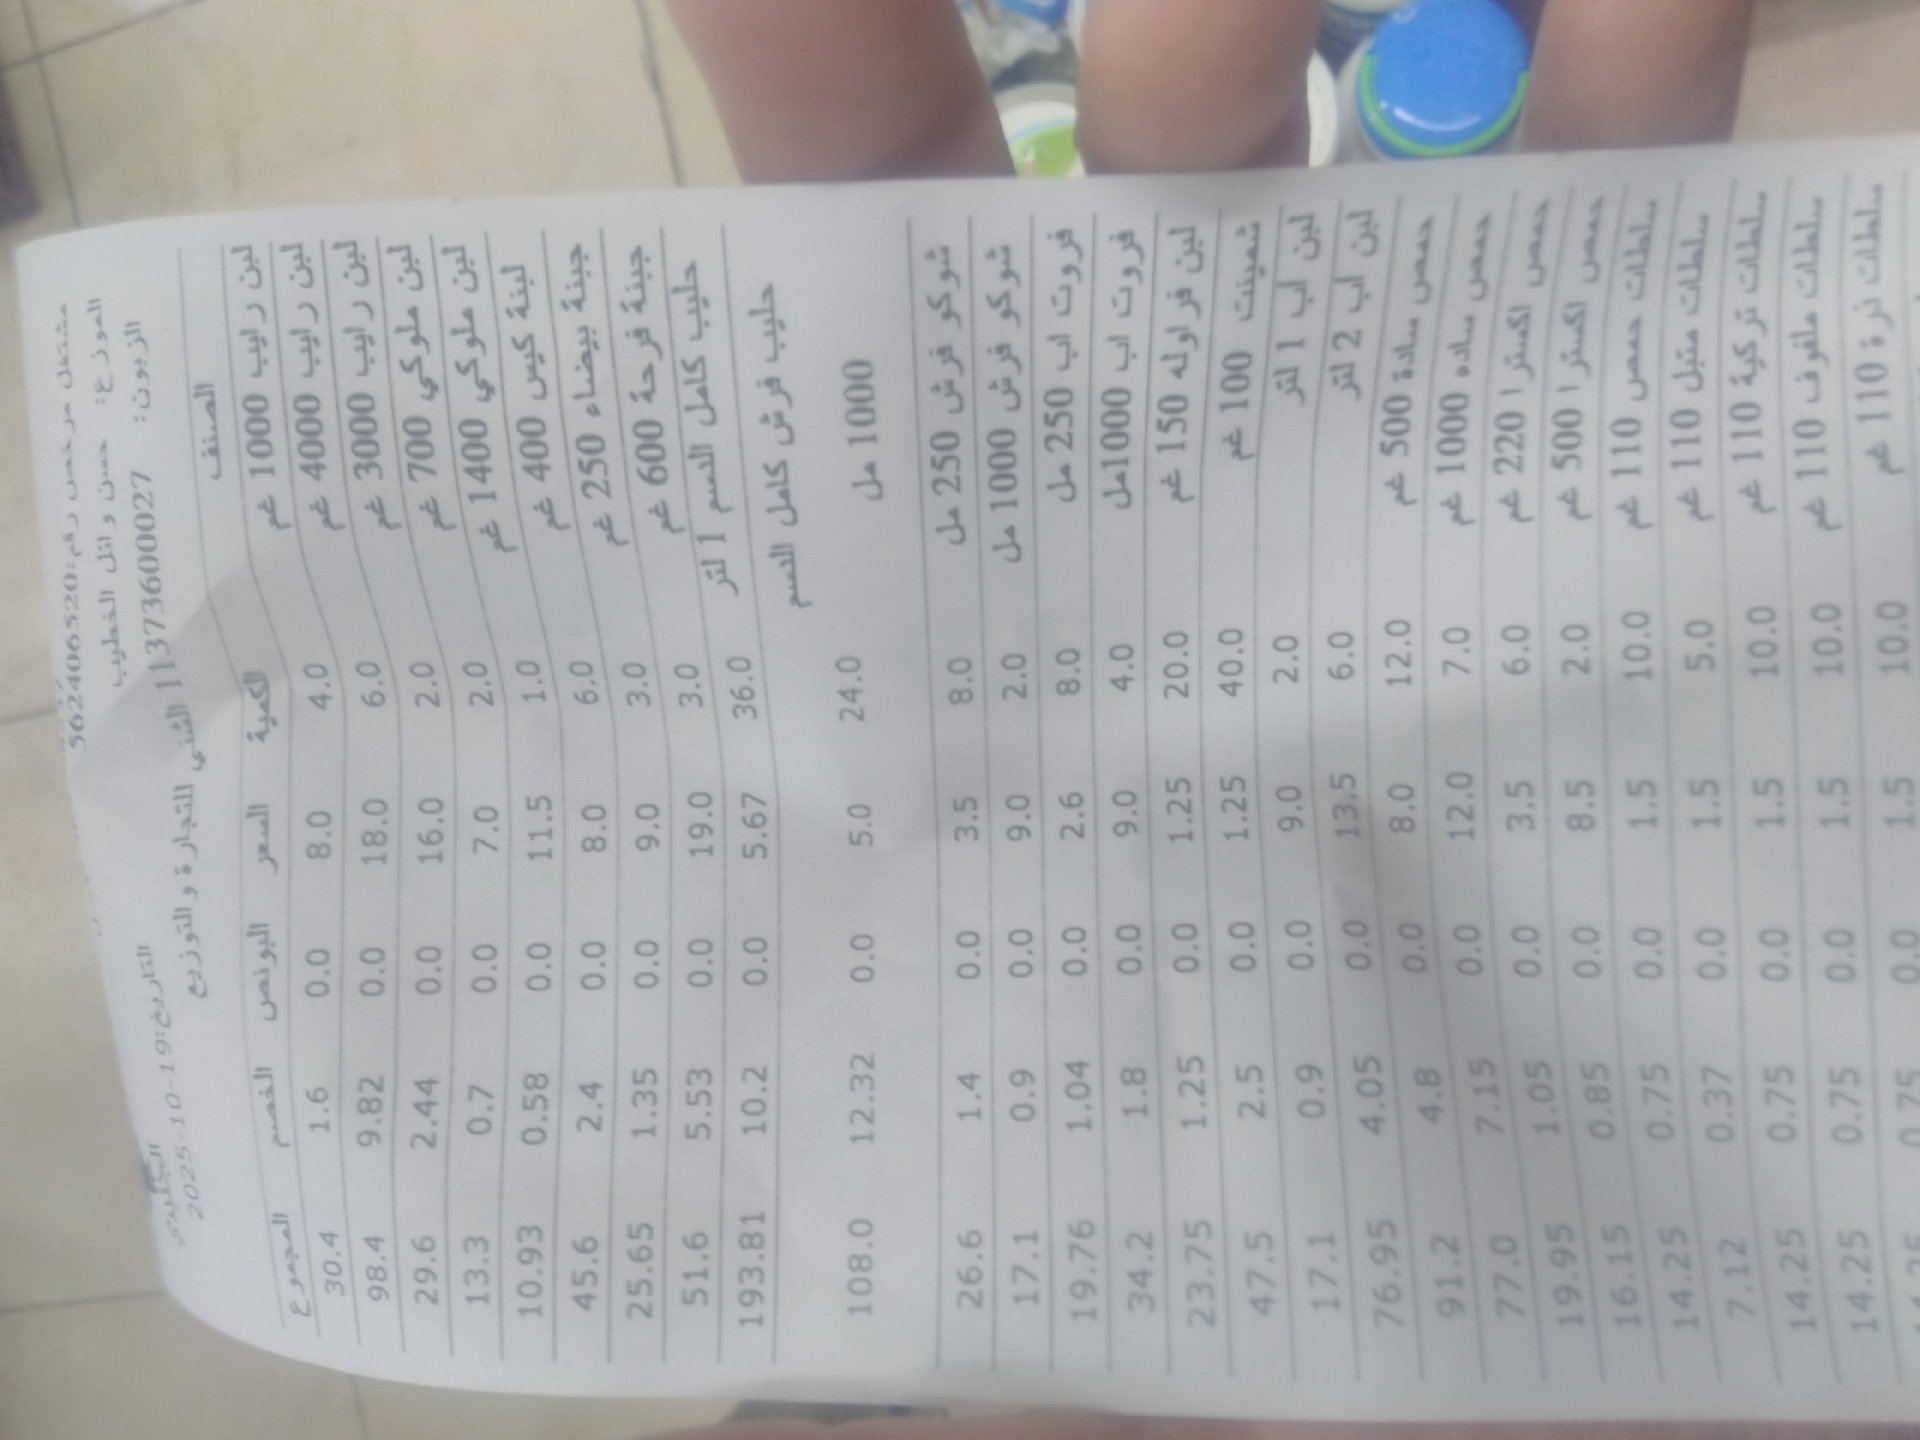 مشتغل مرخص رقم:562406520
الموزع: حسن وائل الخطيب
التاريخ:19-10-2025
الزبون: 1137360027 الثني التجارة و التوزيع
الصنف الكمية السعر البونص الخصم المجموع
لبن رايب 1000 غم 4.0 8.0 0.0 1.6 30.4
لبن رايب 4000 غم 6.0 18.0 0.0 9.82 98.4
لبن رايب 3000 غم 2.0 16.0 0.0 2.44 29.6
لبن ملوكي 700 غم 2.0 7.0 0.0 0.7 13.3
لبن ملوكي 1400 غم 1.0 11.5 0.0 0.58 10.93
لبنة كيس 400 غم 6.0 8.0 0.0 2.4 45.6
جبنة بيضاء 250 غم 3.0 9.0 0.0 1.35 25.65
جبنة فرحة 600 غم 3.0 19.0 0.0 5.53 51.6
حليب كامل الدسم 1 لتر 36.0 5.67 0.0 10.2 193.81
حليب فرش كامل الدسم
1000 مل 24.0 5.0 0.0 12.32 108.0
شوكو فرش 250 مل 8.0 3.5 0.0 1.4 26.6
شوكو فرش 1000 مل 2.0 9.0 0.0 0.9 17.1
فروت اب 250 مل 8.0 2.6 0.0 1.04 19.76
فروت اب 1000مل 4.0 9.0 0.0 1.8 34.2
لبن فراوله 150 غم 20.0 1.25 0.0 1.25 23.75
شمينت 100 غم 40.0 1.25 0.0 2.5 47.5
لبن اب 1 لتر 2.0 9.0 0.0 0.9 17.1
لبن اب 2 لتر 6.0 13.5 0.0 4.05 76.95
حمص سادة 500 غم 12.0 8.0 0.0 4.8 91.2
حمص ساده 1000 غم 7.0 12.0 0.0 7.15 77.0
حمص اكسترا 220 غم 6.0 3.5 0.0 1.05 19.95
حمص اكسترا 500 غم 2.0 8.5 0.0 0.85 16.15
سلطات حمص 110 غم 10.0 1.5 0.0 0.75 14.25
سلطات متبل 110 غم 5.0 1.5 0.0 0.37 7.12
سلطات تركية 110 غم 10.0 1.5 0.0 0.75 14.25
سلطات ملفوف 110 غم 10.0 1.5 0.0 0.75 14.25
سلطات ذرة 110 غم 10.0 1.5 0.0 0.75